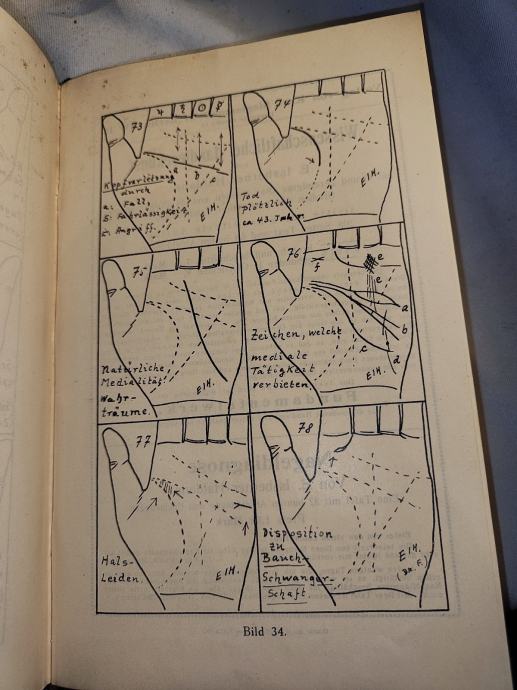 73
♃ ♄ ☉ ☿
Kopfverletzung
durch
a: Fall,
b: Fahrlässigkeit,
c: Angriff.
a b c
EIH.
74
Tod
plötzlich
ca 43. Jahr.
EIH.
75
Natürliche
Medialität!
Wahr-
träume.
EIH.
76
f
e
e
a
b
c
d
Zeichen, welche
mediale
Tätigkeit
verbieten.
EIH.
77
Hals-
Leiden.
EIH.
78
Disposition
zu
Bauch-
Schwanger-
schaft.
EIH.
Bild 34.